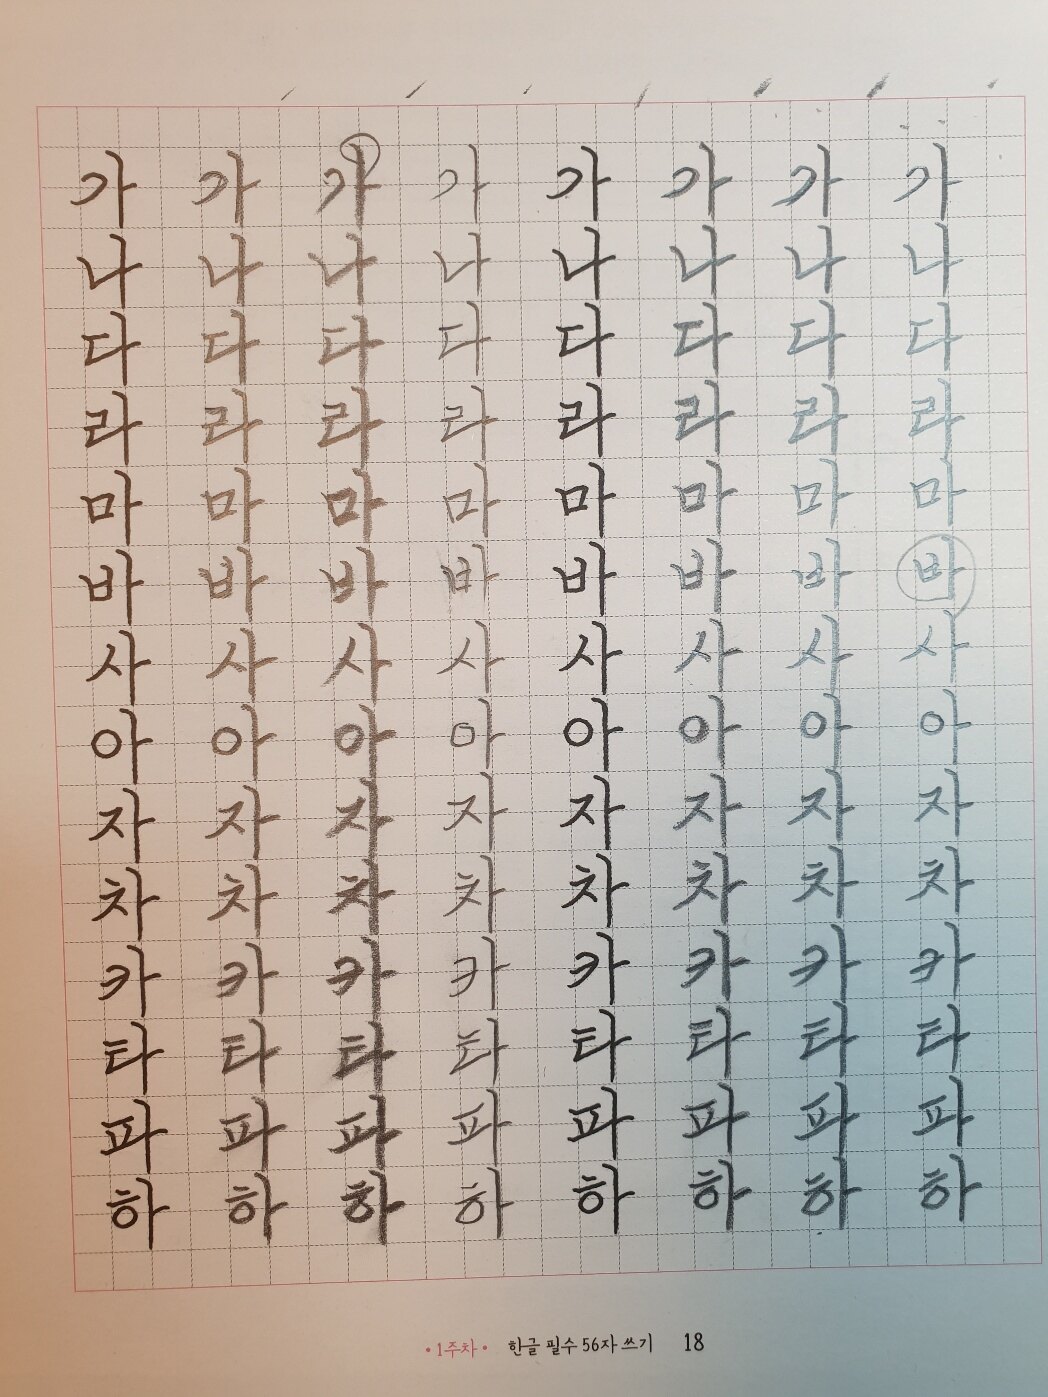 가 가 가 가 가 가 가 가
나 나 나 나 나 나 나 나
다 다 다 다 다 다 다 다
라 라 라 라 라 라 라 라
마 마 마 마 마 마 마 마
바 바 바 바 바 바 바 바
사 사 사 사 사 사 사 사
아 아 아 아 아 아 아 아
자 자 자 자 자 자 자 자
차 차 차 차 차 차 차 차
카 카 카 카 카 카 카 카
타 타 타 타 타 타 타 타
파 파 파 파 파 파 파 파
하 하 하 하 하 하 하 하
•1주차• 한글 필수 56자 쓰기 18